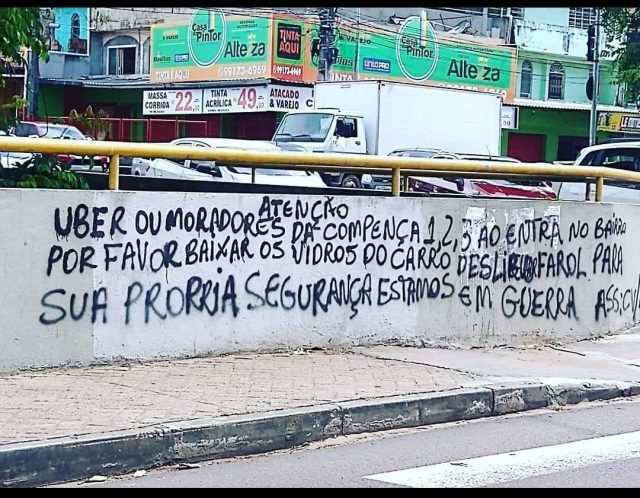 Casa do
PINTOR
Alteza
99173-6969
TINTA
AQUI
Casa do
PINTOR
Alteza
MASSA
CORRIDA
22,
TINTA
ACRÍLICA
49,
ATACADO
& VAREJO
ATENÇÃO
UBER OU MORADORES DA COMPENÇA 1,2,3 AO ENTRA NO BAIRRO
POR FAVOR BAIXAR OS VIDROS DO CARRO FAROL PARA
SUA PRORRIA SEGURANÇA ESTAMOS EM GUERRA ASS:CV